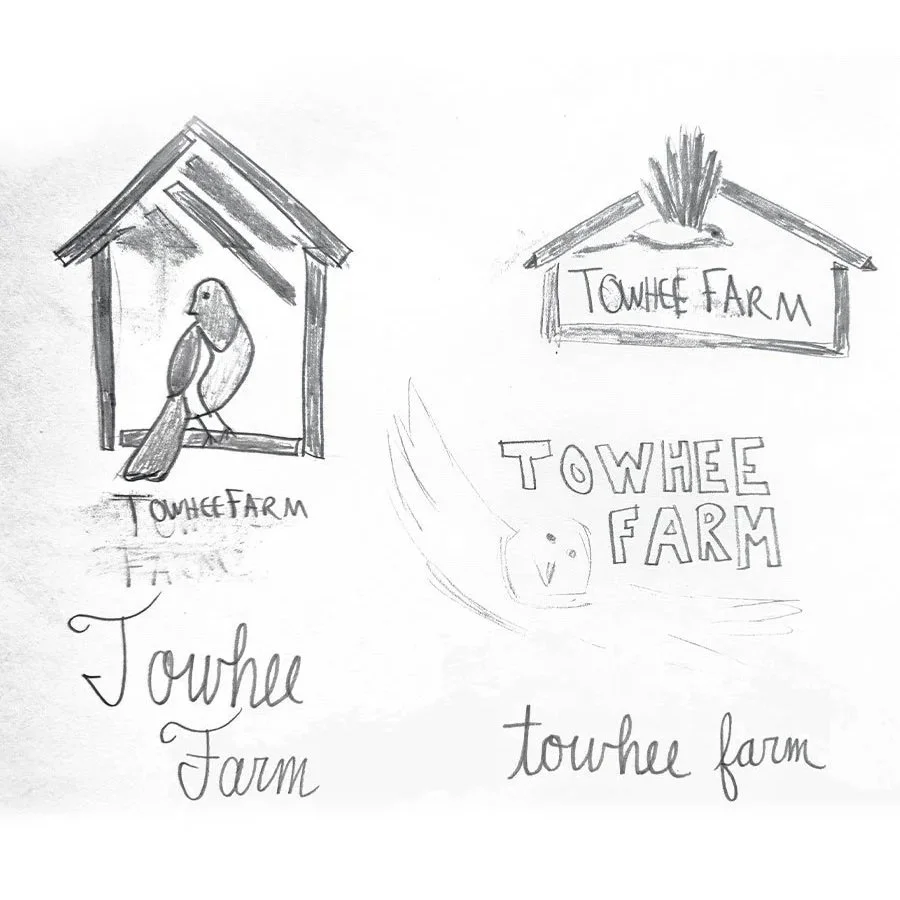 TOWHEE FARM
TOWHEE FARM
FARM
TOWHEE
FARM
Towhee
Farm
towhee farm